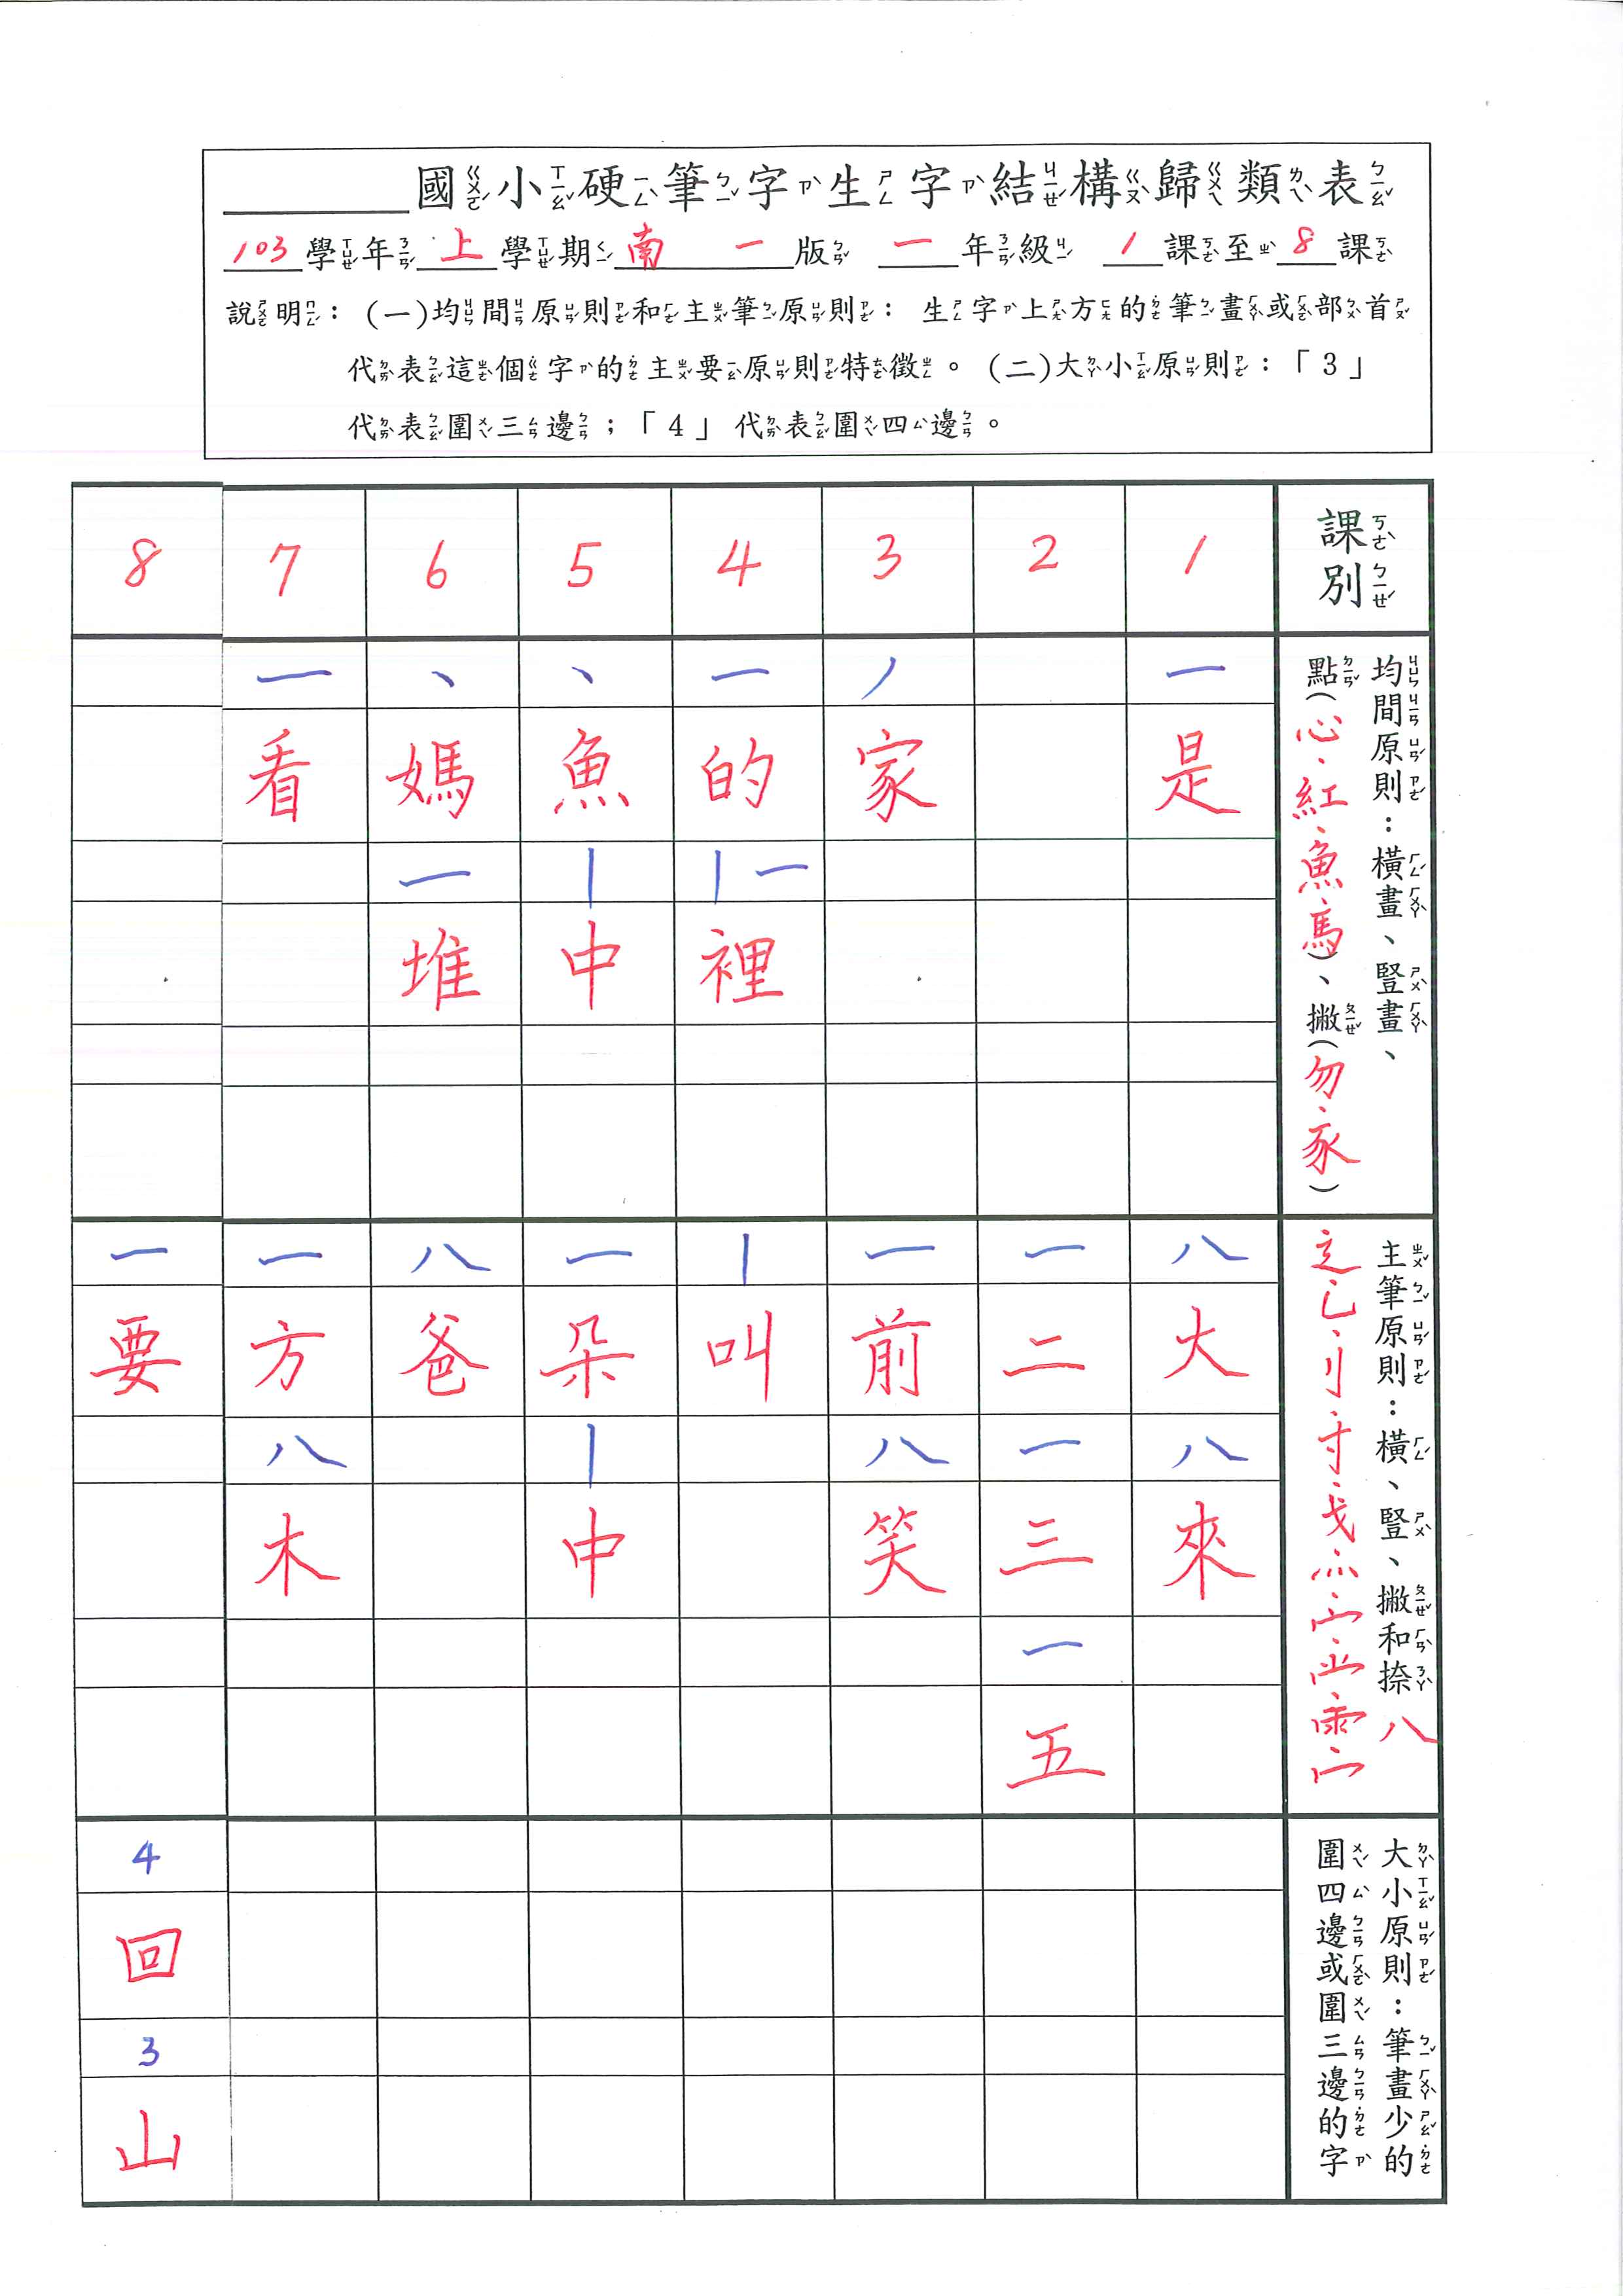 國小硬筆字生字結構歸類表
103學年上學期南一版 一年級 1課至8課
說明：(一)均間原則和主筆原則：生字上方的筆畫或部首
代表這個字的主要原則特徵。(二)大小原則：「3」
代表圍三邊；「4」代表圍四邊。
課別
均間原則：橫畫、豎畫、
點(心、紅、魚、馬)、撇(勿、豕)
主筆原則：橫、豎、撇和捺八
辶、乚、刂、寸、戈、灬、宀、
大小原則：筆畫少的
圍四邊或圍三邊的字
1
一
是
八
大
八
來
2
一
二
一
三
一
五
3
丿
家
一
前
八
笑
4
一
的
丨一
裡
丨
叫
5
丶
魚
丨
中
一
朵
丨
中
6
丶
媽
一
堆
八
爸
7
一
看
一
方
八
木
8
一
要
4
回
3
山